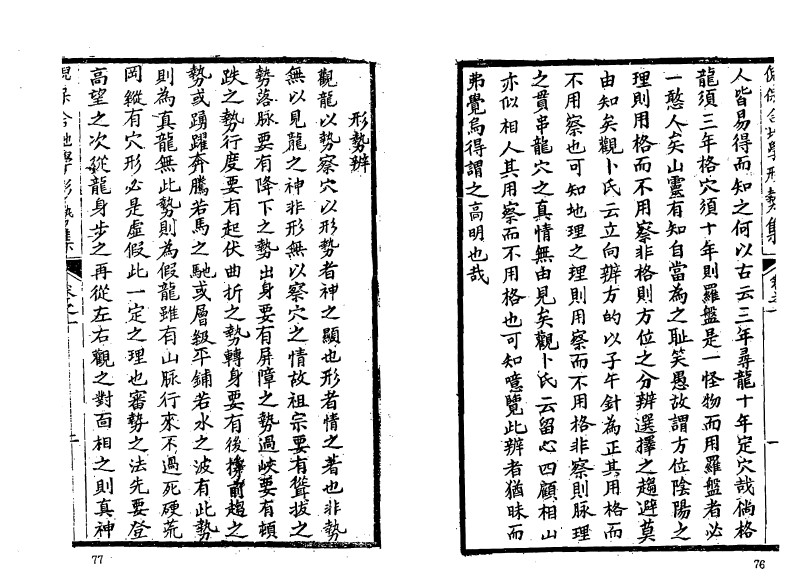 保合地學形勢集
卷之一
一
人皆易得而知之何以古云三年尋龍十年定穴哉倘格
龍須三年格穴須十年則羅盤是一怪物而用羅盤者必
一憨人矣山靈有知自當為之耻笑愚故謂方位陰陽之
理則用格而不用察非格則方位之分辨選擇之趨避莫
由知矣觀卜氏云立向辨方的以子午針為正其用格而
不用察也可知地理之理則用察而不用格非察則脉理
之貫串龍穴之真情無由見矣觀卜氏云留心四顧相山
亦似相人其用察而不用格也可知噫覽此辨者猶昧而
弗覺烏得謂之高明也哉
76
形勢辨
觀龍以勢察穴以形勢者神之顯也形者情之著也非勢
無以見龍之神非形無以察穴之情故祖宗要有聳拔之
勢落脉要有降下之勢出身要有屏障之勢過峽要有頓
跌之勢行度要有起伏曲折之勢轉身要有後撐前趨之
勢或踴躍奔騰若馬之馳或層級平鋪若水之波有此勢
則為真龍無此勢則為假龍雖有山脉行來不過死硬荒
岡縱有穴形必是虛假此一定之理也審勢之法先要登
高望之次從龍身步之再從左右觀之對面相之則真神
保合地學形勢集
卷之一
二
77